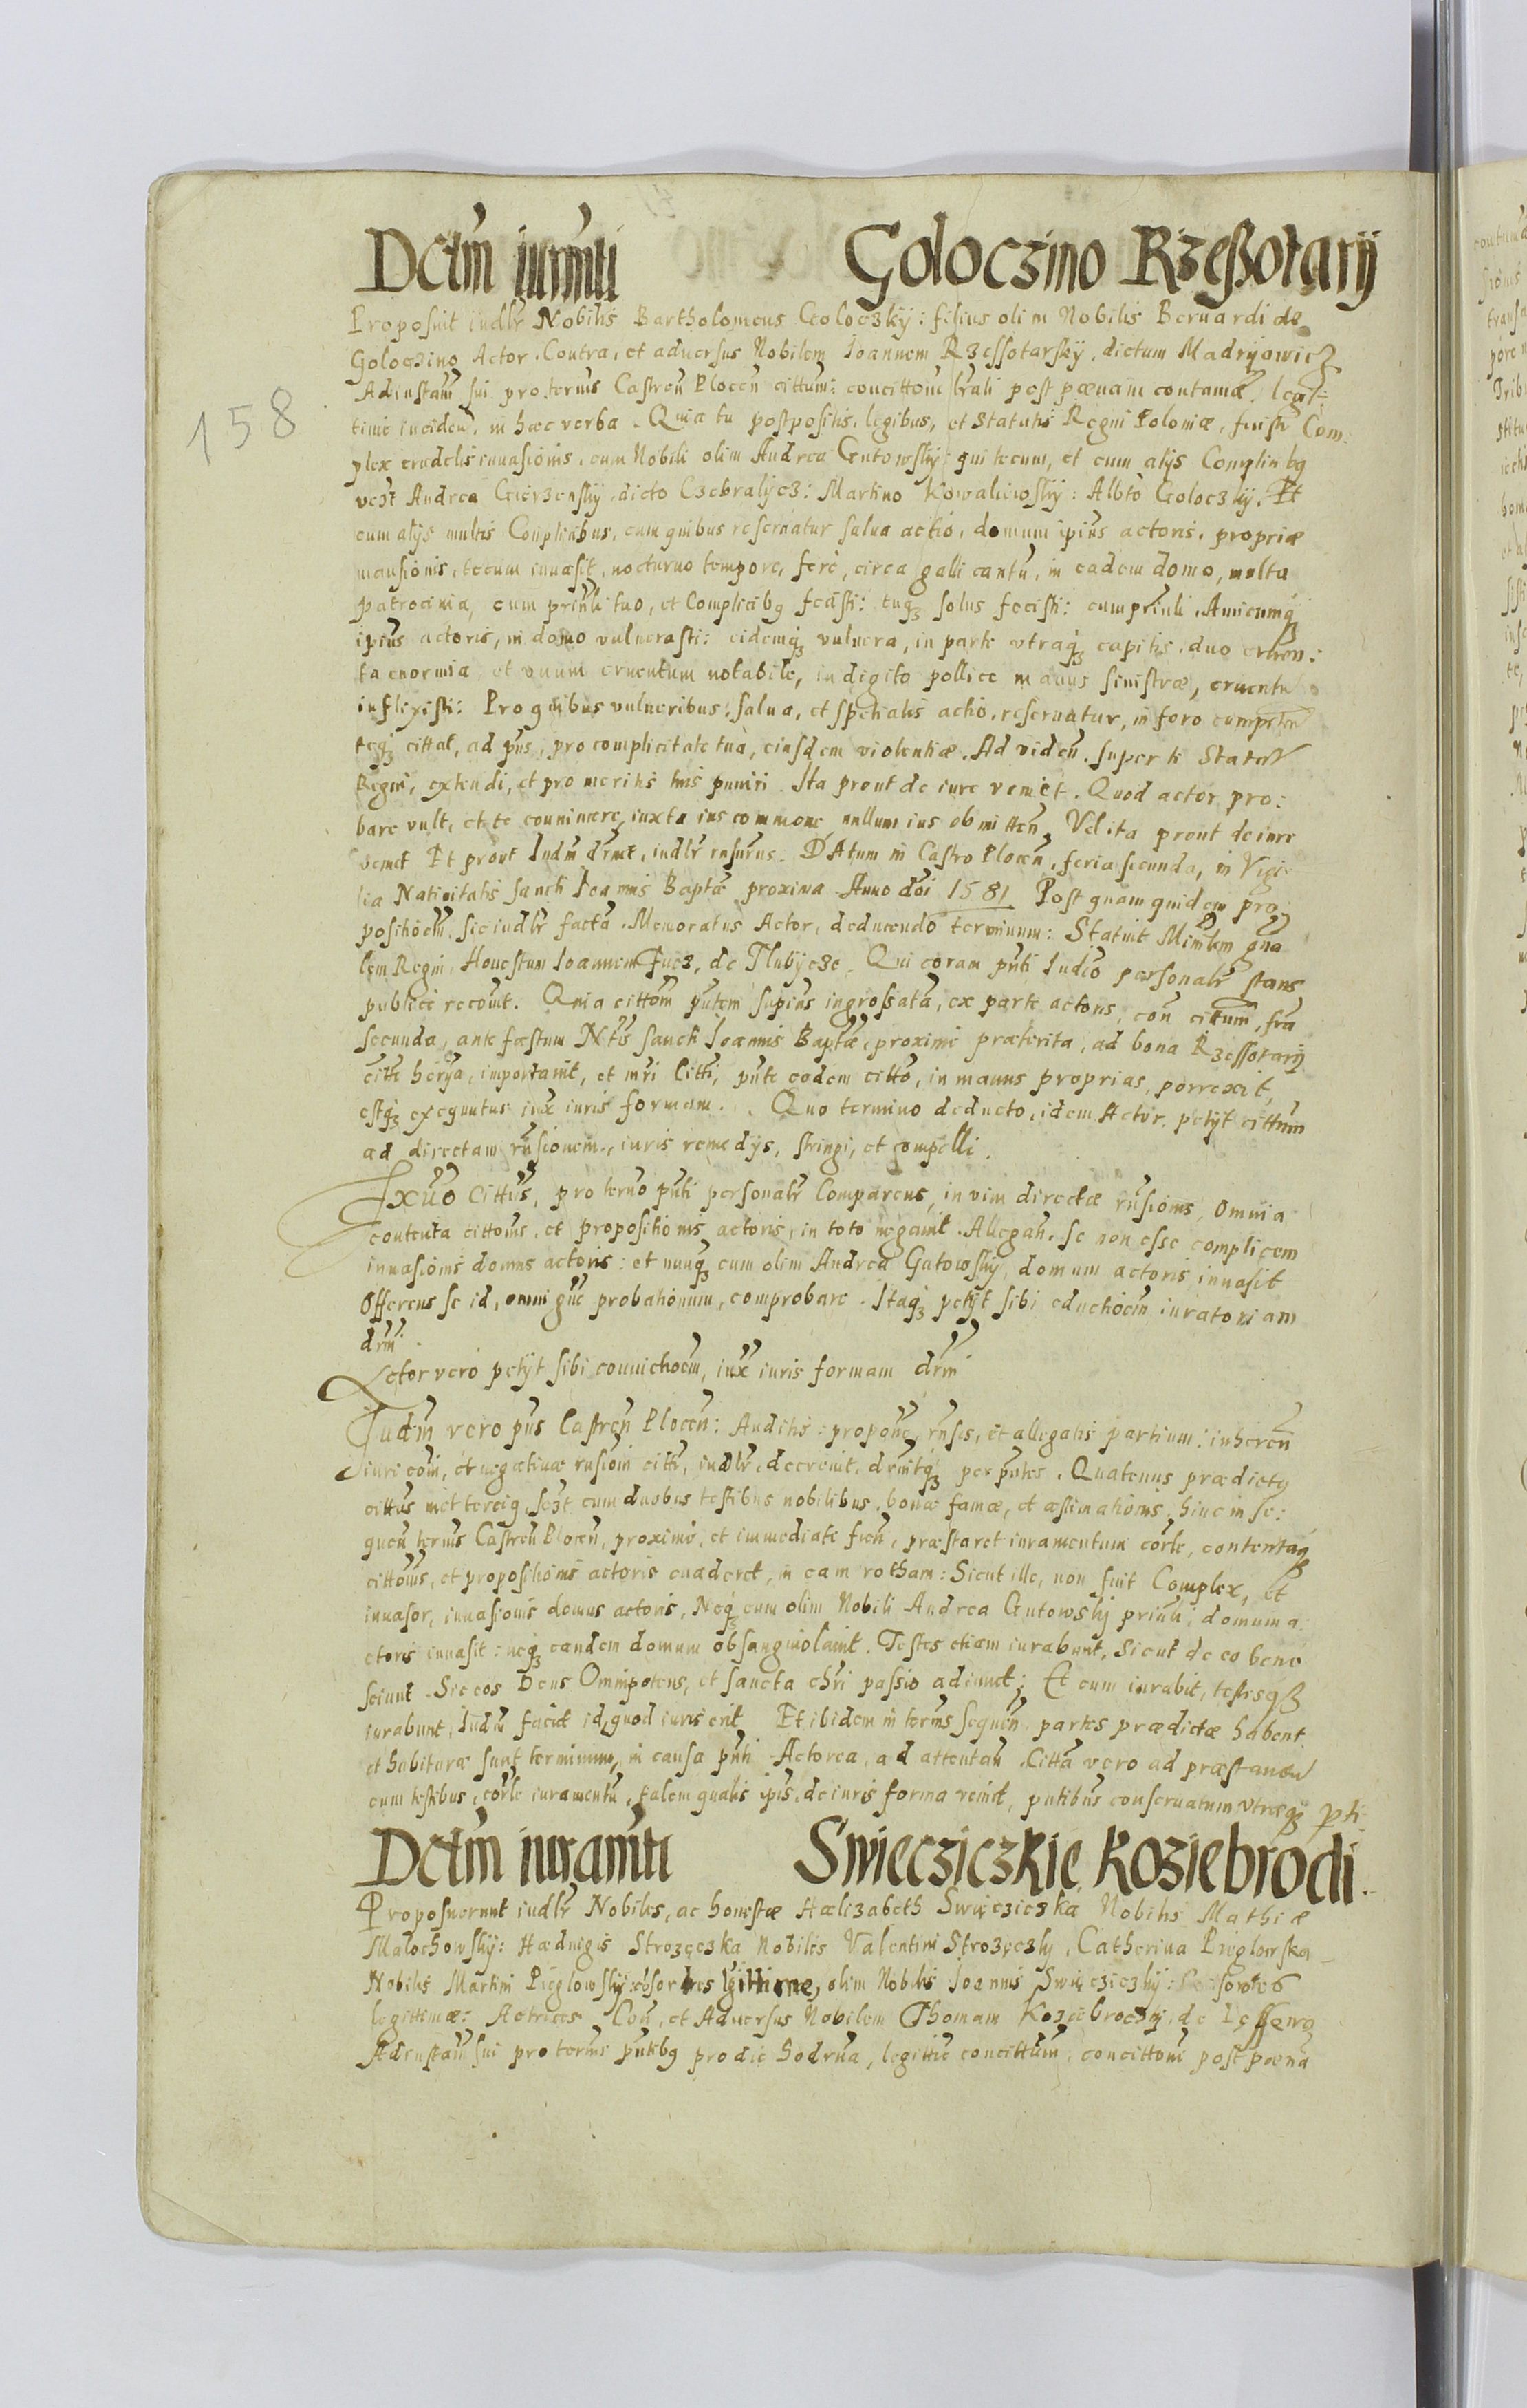 Dctm iurmti Goloczino Rzeßotarij
Proposuit iudlr Nobilis Bartholomeus Goloczky: filius olim Nobilis Bernardi de
Goloczino Actor. Contra, et aduersus Nobilem Ioannem Rzessotarsky, dictum Madryowicz
Adinstam sui pro termis Castren Plocen cittum: concittom lrali post pænam contumæ. legi:
time inciden. in hæc verba. Quia tu postpositis, legibus, et Statutis Regni Poloniæ, fuisti Com:
plex crudelis inuasionis, cum Nobili olim Andrea Gutowsky: qui tecum, et cum alijs Complicibg
vczt Andrea Gierzensky, dicto Czebralycz: Martino Kowaliewsky: Albto Goloczky. Et
cum alijs multis Complicibus, cum quibus reseruatur salua actio, domum ipius actoris, propriæ
mansionis, tecum inuasit, nocturno tempore, fere, circa galli cantu, in eadem domo, multa
patrocinia, cum prinli tuo, et Complicibg fecisti: tuqz solus fecisti: cum prinli. Amicumqz
ipius actoris, in domo vulnerasti: eidemqz vulnera, in parte vtraqz capitis, duo cruen:
ta enormia et vnum cruentum notabile, in digito pollice manus sinistræ, cruentu
inflixisti: Pro quibus vulneribus: salua, et spetialis actio, reseruatur, in foro competen
teqz cittat, ad pns, pro complicitate tua, eiusdem violentiæ. Ad viden. super te Statut
Regni, extendi, et pro meritis tuis puniri. Ita prout de iure veniet. Quod actor pro:
bare vult, et te conuincere, iuxta ius commune, nullum ius obmitten. Vel ita prout de iure
veniet Et prout Iudm drmet, iudlr rnsurus. DAtum in Castro Plocen, feria secunda, in Vigi
lia Natiuitatis sancti Ioannis Baptæ proxima Anno doi 1581 Post quam quidem pro:
positioem. sic iudlr facta. Memoratus Actor, deducendo terminum: Statuit Mimlem gna
lem Regni, Honestum Ioannem Fucz, de Tlubycze. Qui coram pnti Iudio personalr stans
publice recouit. Quia cittom pntem supius ingrossata, ex parte actoris, con cittum, fra
secunda, ante fæstum Ntis sancti Ioannis Baptæ, proxime præterita, ad bona Rzessotarij
citti herija, importauit, et mri Citti, pnte eodem citto, in manus proprias, porrexit,
estqz exeguutus iux iuris formam. Quo termino deducto, idem Actor, petyt cittum
ad directam rnsionem, iuris remedijs, stringi, et compelli.
Exuo Cittus, pro termo pnti personalr Comparens, in vim directæ rnsionis, Omnia
contenta cittoms, et propositionis actoris, in toto negauit. Allegan. se non esse complicem
inuasionis domus actoris: et nunqz cum olim Andrea Gutowsky, domum actoris inuasit
Offerens se id, omni gne probationum, comprobare. Itaqz petyt sibi eductioem iuratoriam
drni.
Actor vero petyt sibi conuictioem, iux iuris formam drni
Iudm vero pns Castren Plocen: Auditis: propone, rnsis, et allegatis partium: inheren
iuri com, et negatiuæ rnsioni citti, iudlr decreuit, drmitqz per pntes. Quatenus prædictg
cittus met tercig, sczt cum duobus testibus nobilibus, bonæ famæ, et æstimationis, hinc in se:
quen termis Castren Plocen, proxime, et immediate fien, præstaret iuramentum corle, contentaqz
cittoms, et propositionis actoris euaderet, in eam rotham: Sicut ille, non fuit Complex, et
inuasor, inuasionis domus actoris, Neqz cum olim Nobili Andrea Gutowsky prinli, domum a
ctoris inuasit: neqz eandem domum obsanguiolauit. Testes etiam iurabunt, Sicut de eo bene
sciunt. Sic eos Deus Omnipotens, et sancta chri passio adiuuet; Et cum iurabit, testesqz
iurabunt, Iudm faciet id, quod iuris erit Et ibidem in termis sequen. partes prædictæ habent
et habituræ sunt terminum, in causa pnti Actorea, ad attentan. Citta vero ad præstanen
cum testibus, corle iuramentu, talem qualis ipis, de iuris forma veniet, pntibus conseruatum vtræqz pti.
Dctm iuramti Swiecziczkie Koziebrodi.
Proposuerunt iudlr Nobiles, ac honestæ Hælizabeth Swięcziczka Nobilis Mathiæ
Malochowsky: Hædwigis Strozęczka Nobilis Valentini Strozęczky, Catherina Pieglowska
Nobilis Martini Pieglowsky: cosortes legittime, olim Nobilis Ioannis Swięcziczky: Successores
legittimæ: Actrices Con, et Aduersus Nobilem Thomam Koziebroczky, de Lesseno
Adinstam sui pro termis pntibg pro die hodrna, legittie concittum, concittom post pœna
158